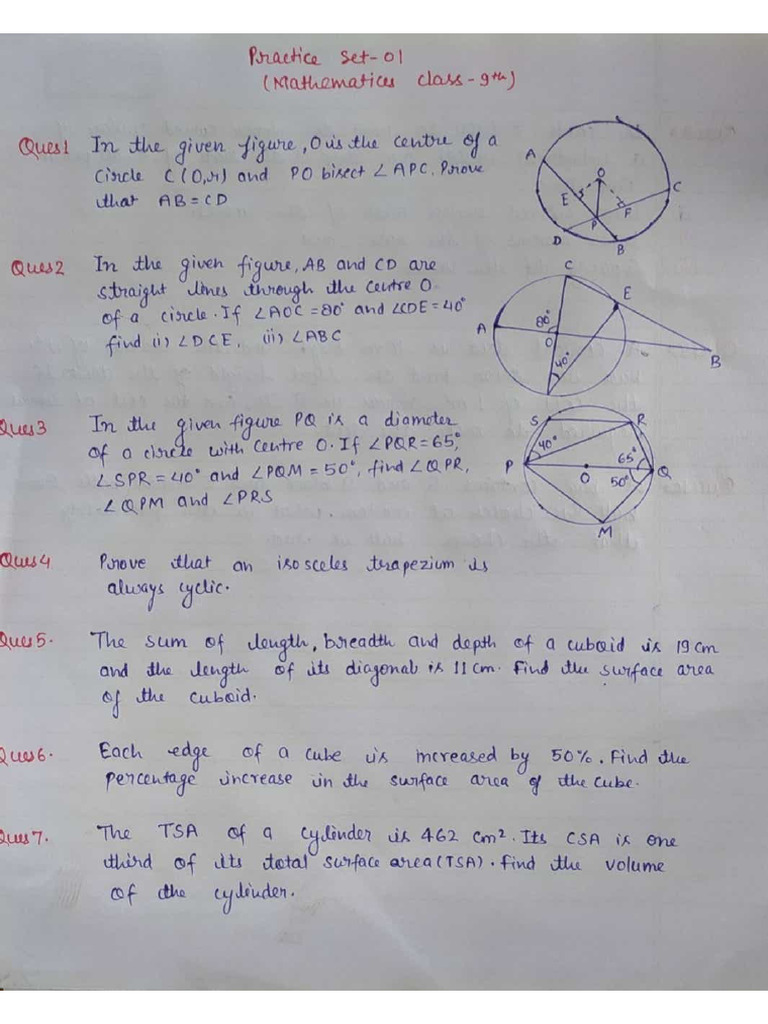 Practice Set-01
(Mathematices class-9th)
Ques1 In the given figure, O is the centre of a
circle C(O,r) and PO bisect ∠APC. Prove
that AB=CD
A
O
C
E
F
P
D
B
Ques2 In the given figure, AB and CD are
straight lines through the centre O
of a circle. If ∠AOC=80° and ∠CDE=40°
find (i) ∠DCE, (ii) ∠ABC
C
E
A
80°
O
40°
B
Ques3 In the given figure PQ is a diameter
of a circle with centre O. If ∠PQR=65°,
∠SPR=40° and ∠PQM=50°, find ∠QPR,
∠QPM and ∠PRS
S
R
40°
65°
P
O
50°
Q
M
Ques4 Prove that an isosceles trapezium is
always cyclic.
Ques5. The sum of length, breadth and depth of a cuboid is 19cm
and the length of its diagonal is 11cm. Find the surface area
of the cuboid.
Ques6. Each edge of a cube is increased by 50%. Find the
percentage increase in the surface area of the cube.
Ques7. The TSA of a cylinder is 462 cm². Its CSA is one
third of its total surface area(TSA). Find the volume
of the cylinder.